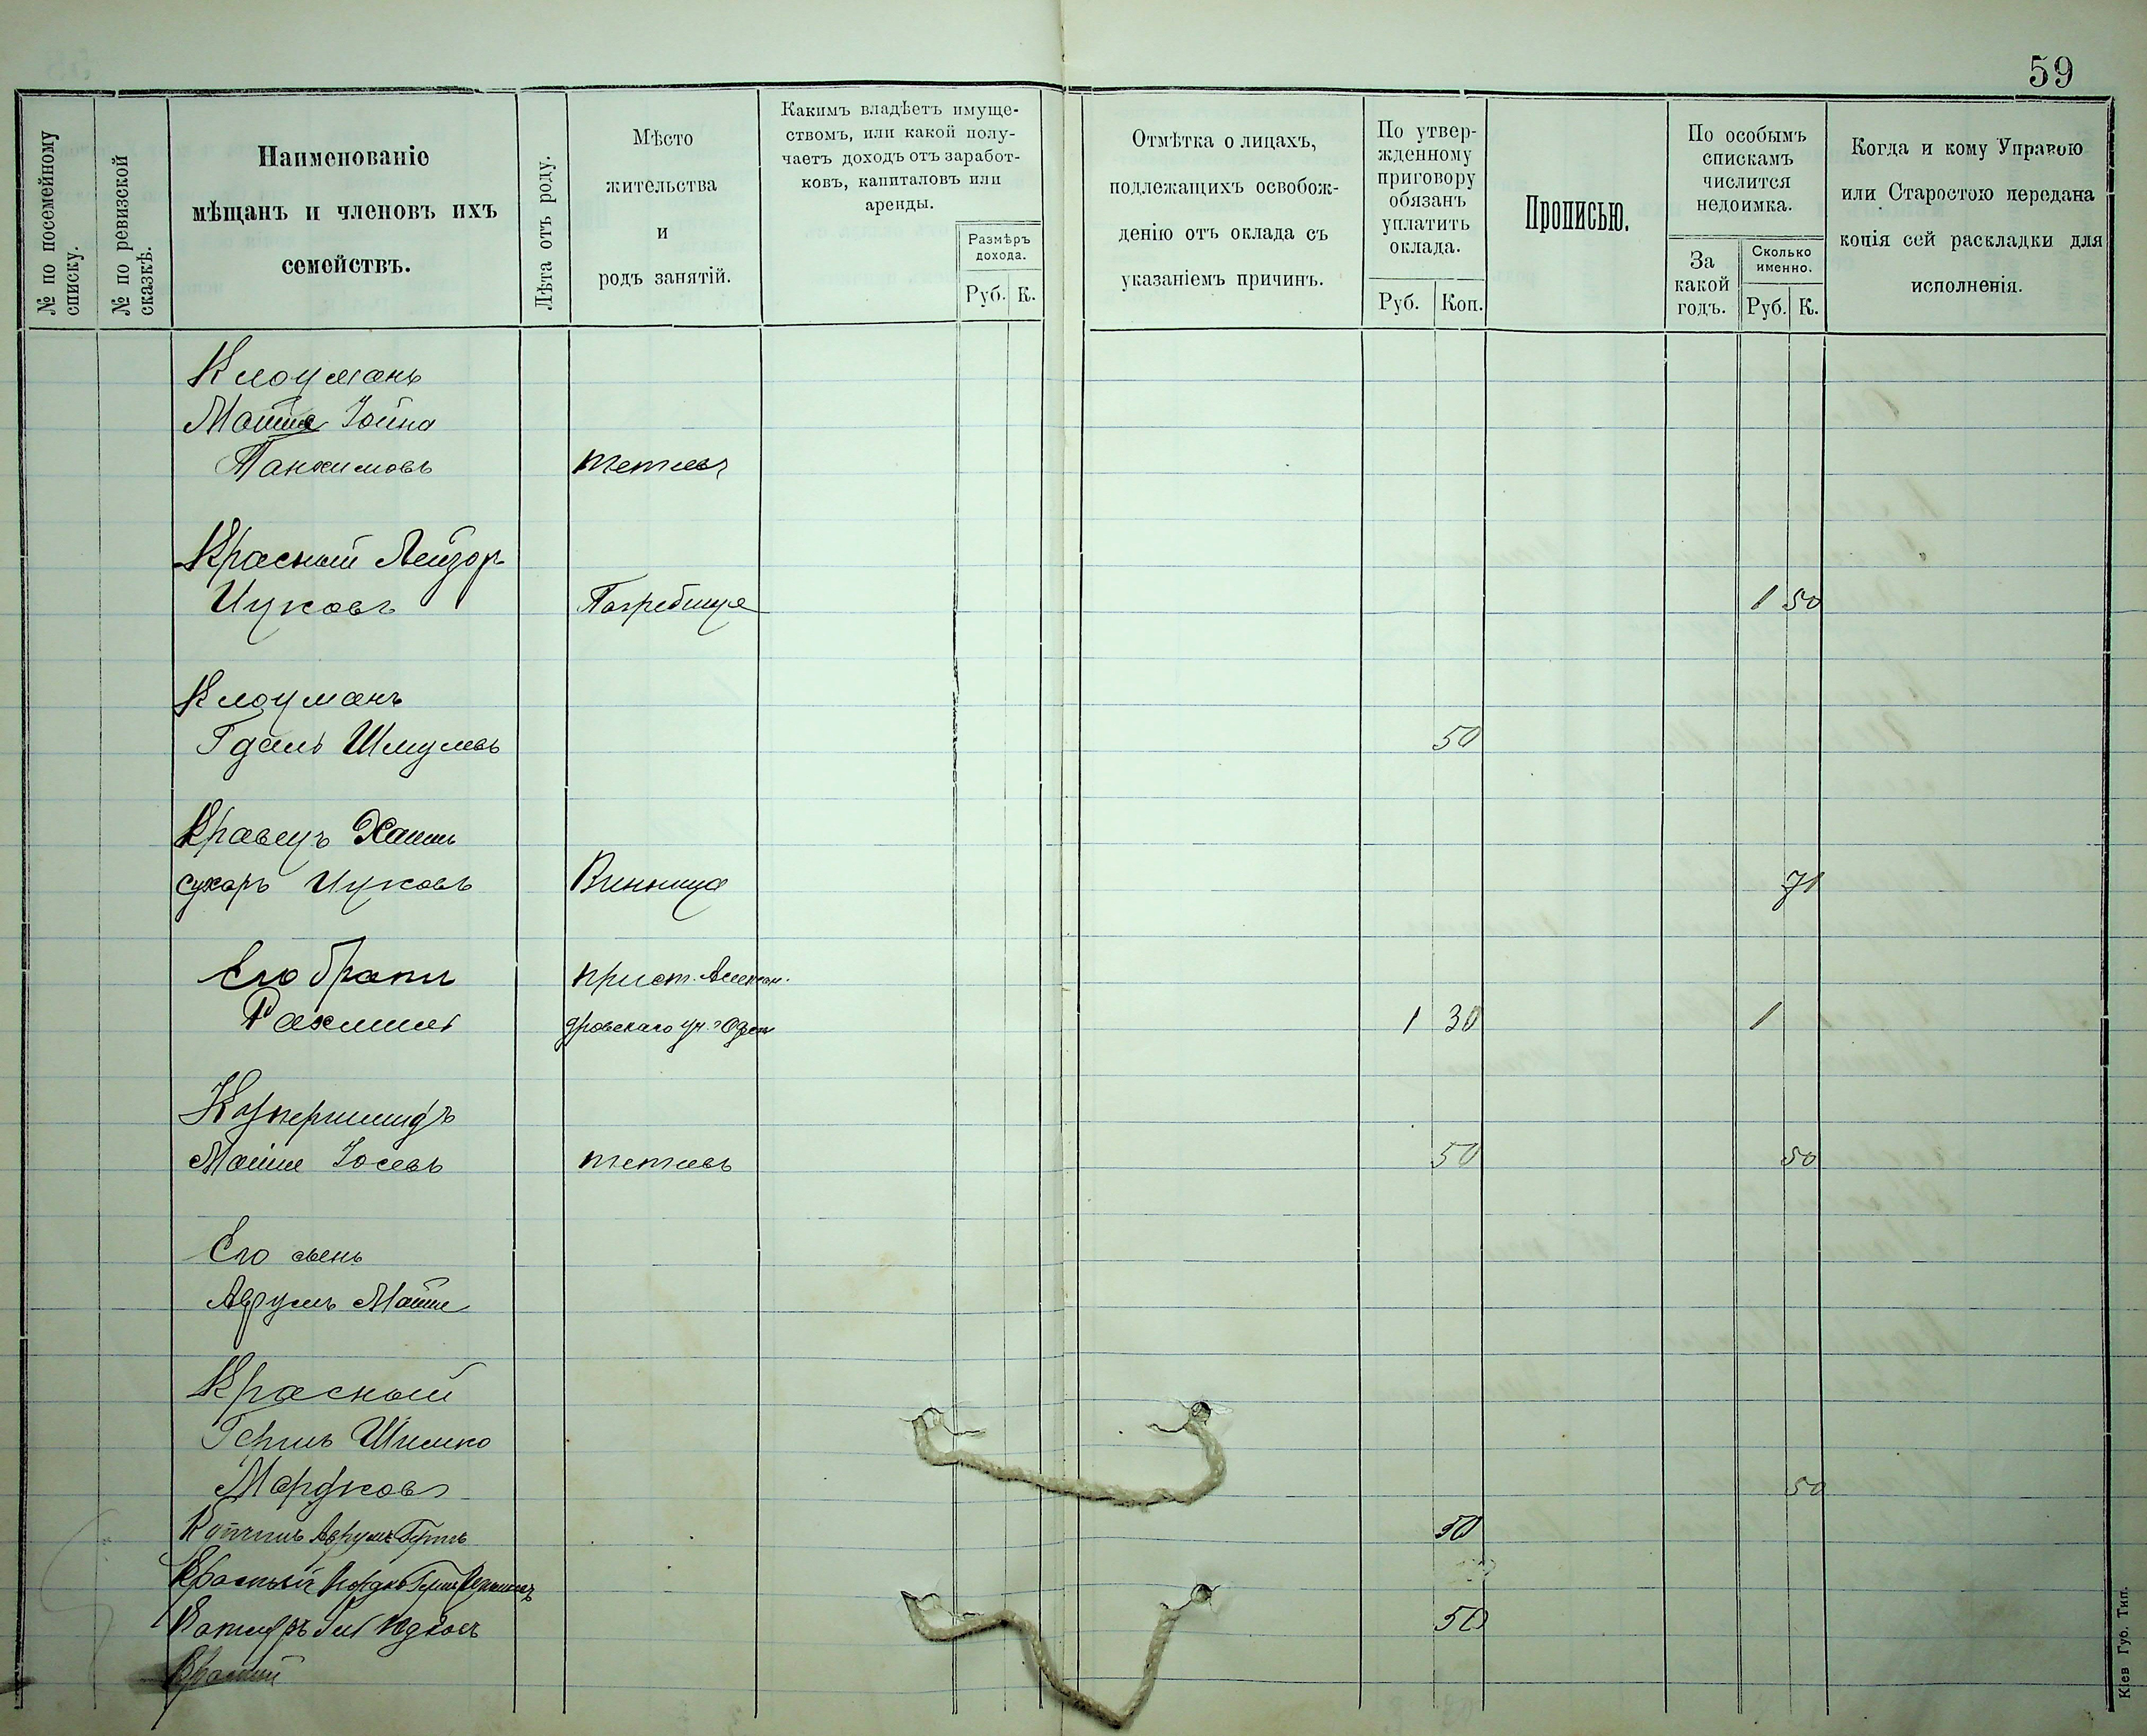 59
№ по посемейному
списку.
№ по ревизской
сказкѣ.
Наименованіе
мѣщанъ и членовъ ихъ
семействъ.
Лѣта отъ роду.
Мѣсто
жительства
и
родъ занятій.
Какимъ владѣетъ имуще-
ствомъ, или какой полу-
чаетъ доходъ отъ заработ-
ковъ, капиталовъ или
аренды.
Размѣръ
дохода.
Руб. К.
Отмѣтка о лицахъ,
подлежащихъ освобож-
денію отъ оклада съ
указаніемъ причинъ.
По утвер-
жденному
приговору
обязанъ
уплатить
оклада.
Руб. Коп.
Прописью.
По особымъ
спискамъ
числится
недоимка.
За
какой
годъ.
Сколько
именно.
Руб. К.
Когда и кому Управою
или Старостою передана
копія сей раскладки для
исполненія.
Клоцманъ
Мошко Іойна
Танхимовъ Тетіевъ
Красный Лейзоръ
Ицковъ Погребище 1 50
Клоцманъ
Гдаль Шмулевъ 50
Кравецъ Хаимъ
Сухаръ Ицковъ Винница 71
Его братъ прист. Алексан-
Рахмиль дровскаго уч. 1 30 1
Купершмидъ
Мошко Іосевъ Тетіевъ 50 50
Его сынъ
Аврумъ Мошко
Красный
Гершъ Шимко
Мордковъ 50
Аврумъ 50
Красный Мордко Гершъ
50
Красный
Кіев Губ. Тип.